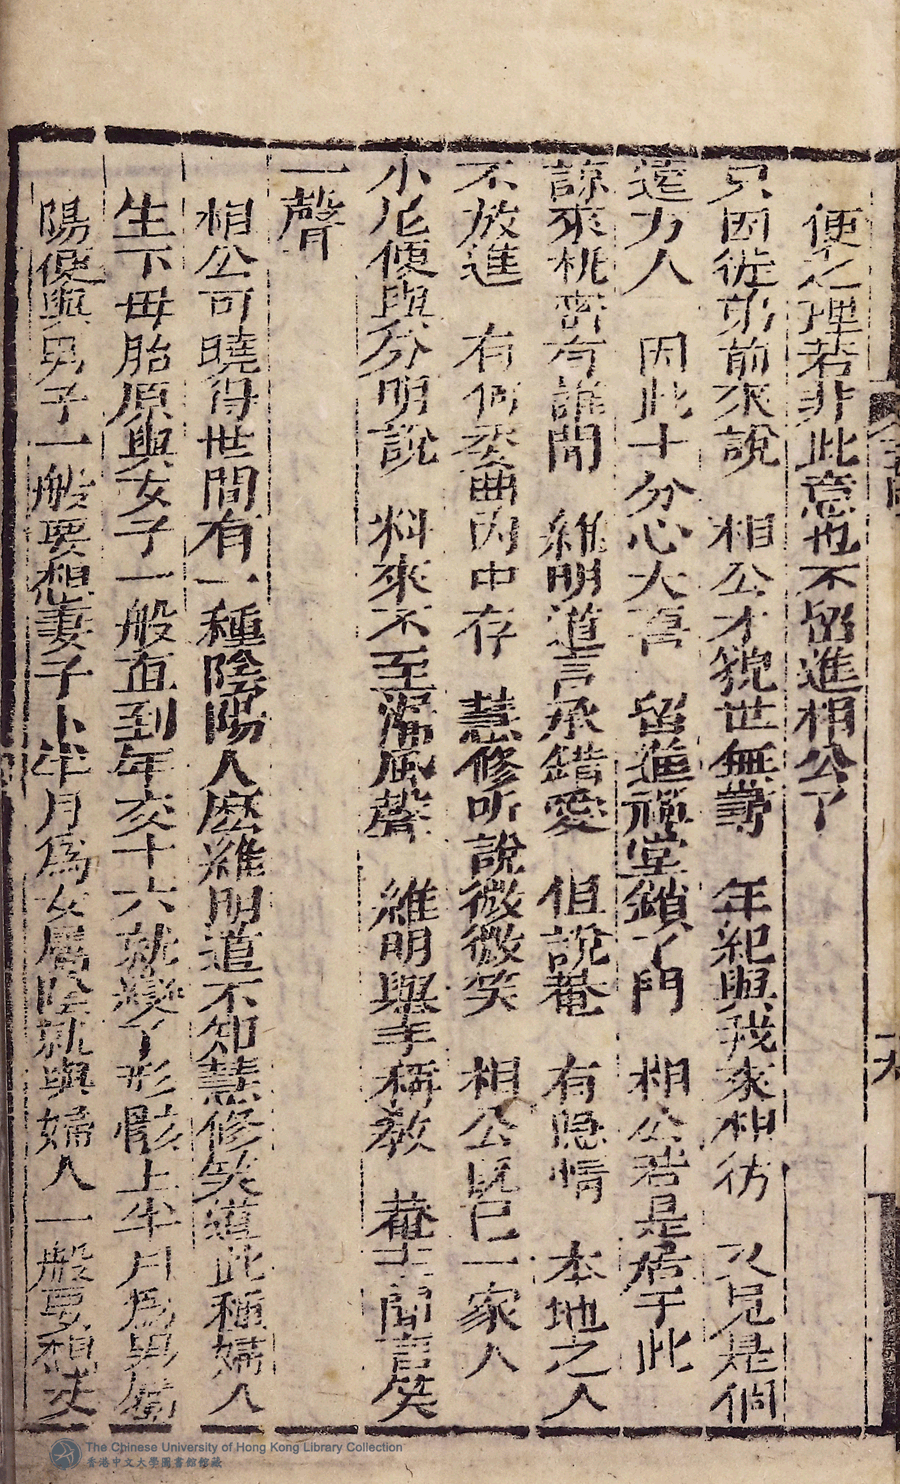 便之理若非此意也不留進相公了
只因徒弟前來說　相公才貌世無對　年紀與我來相彷　又見是個
遠方人　因此十分心大喜　留進禪堂鎖了門　相公若是居于此
諒來桃密有誰聞　維明道言承錯愛　但說菴　有隱情　本地之人
不放進　有何委曲內中存　慧修听說微微笑　相公既已一家人
小尼便與分明說　料來不至漏風聲　維明舉手稱教　菴主聞言笑
一聲
相公可曉得世間有一種陰陽人麽維明道不知慧修笑道此種婦人
生下母胎原與女子一般直到年交十六就變了形骸上半月為男屬
陽便與男子一般要想妻子下半月為女屬陰就與婦人一般要想丈
The Chinese University of Hong Kong Library Collection
香港中文大學圖書館館藏